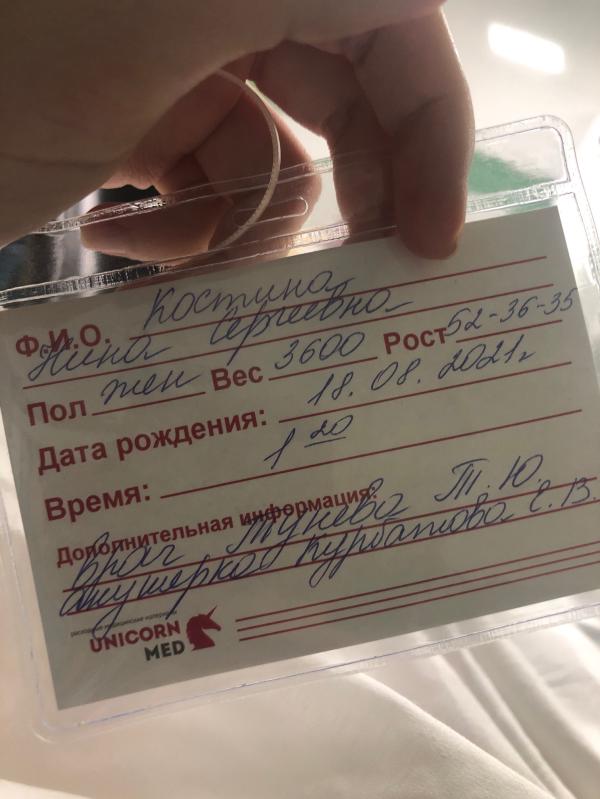 Ф.И.О. Костина
Нина Сергеевна
Пол жен Вес 3600 Рост 52-36-35
Дата рождения: 18.08.2021г
Время: 1 20
Дополнительная информация:
врач Тунева Т.Ю.
акушерка Курбатова Е.В.
расходные медицинские материалы
UNICORN
MED